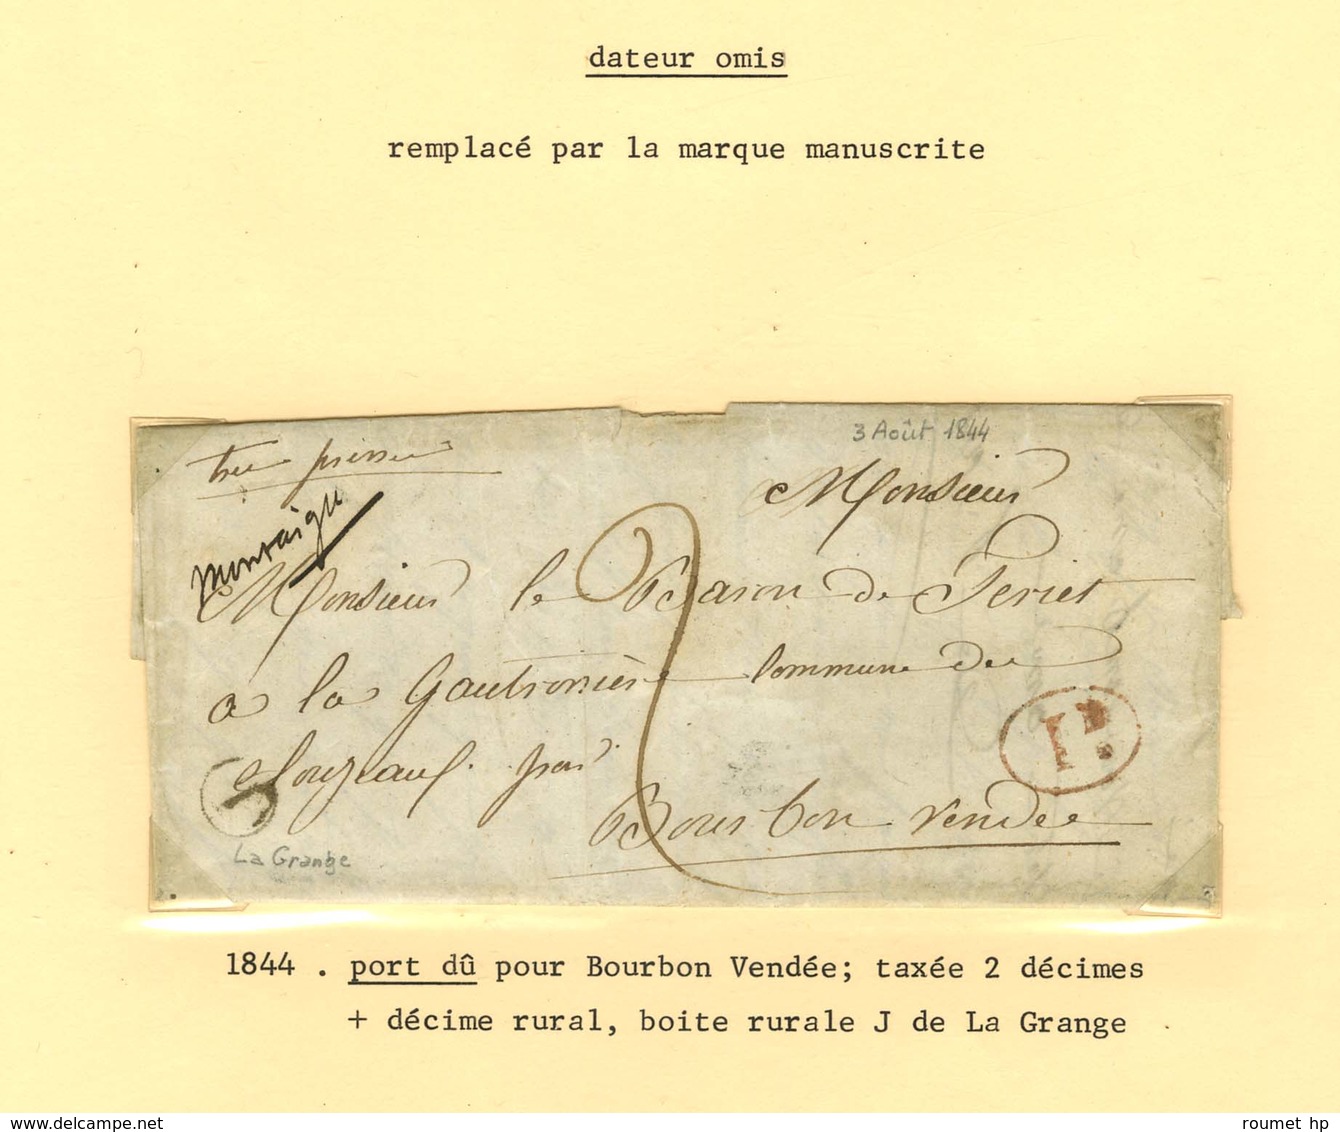 dateur omis
remplacé par la marque manuscrite
3 Août 1844
très pressée
Monsieur
Montaigu
Monsieur le Baron de
a la Gautronnière Commune de
par
1D.
Bourbon vendée
J
La Grange
1844 . port dû pour Bourbon Vendée; taxée 2 décimes
+ décime rural, boite rurale J de La Grange .
roumet hp